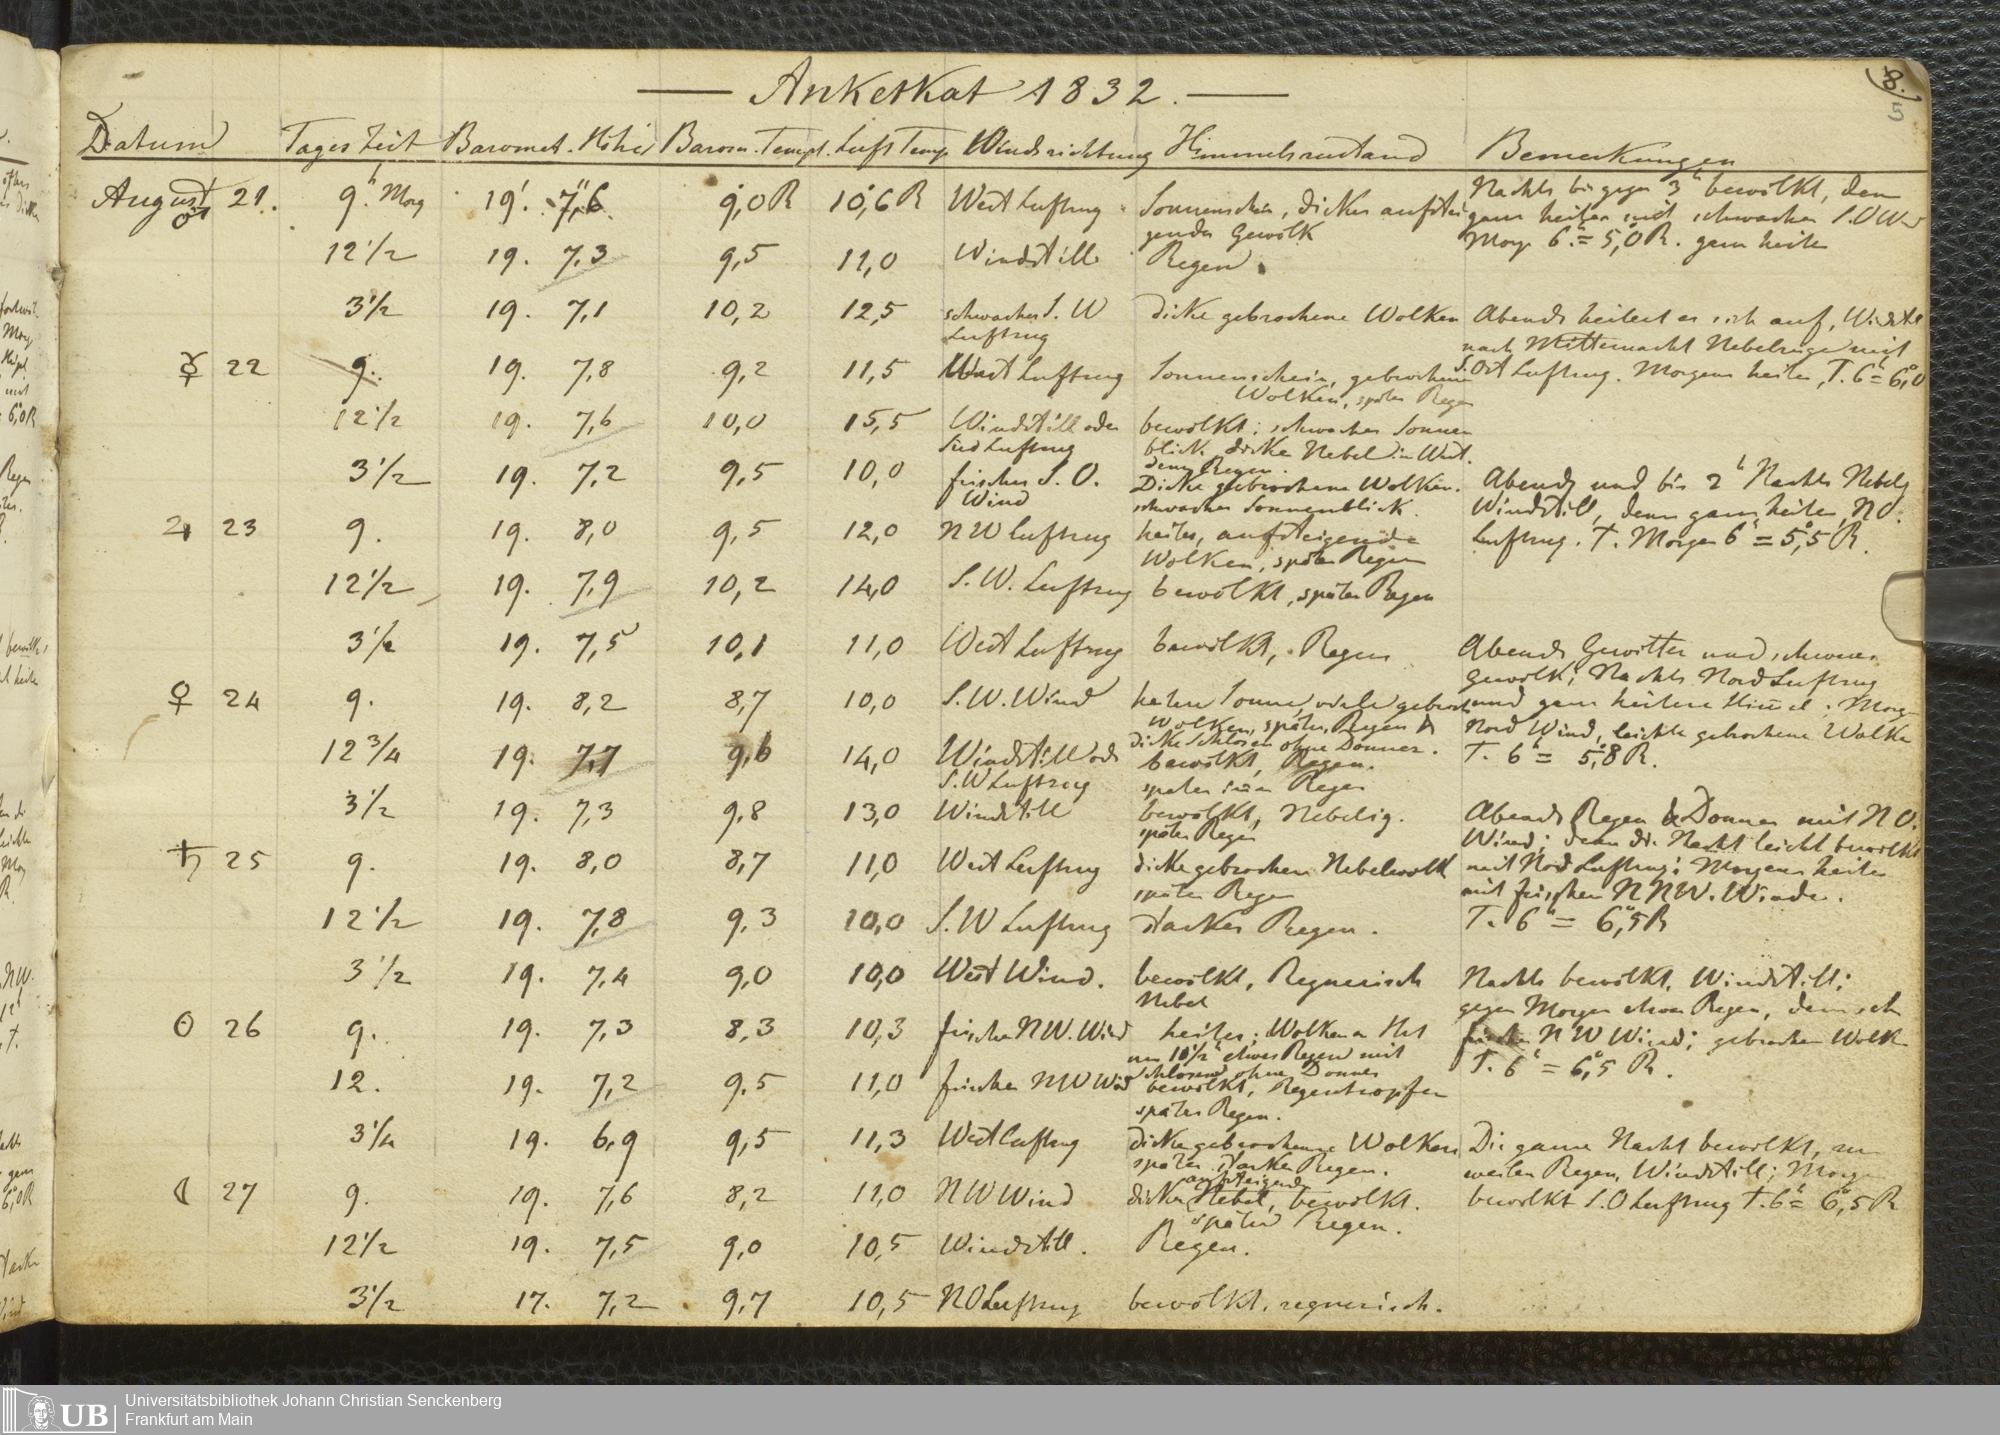 Ankerkat 1832.
8.
5
Datum Tages Zeit Baromet. Höhe Barom. Tempt. Luft Temp Windrichtung Himmelszustand Bemerkungen
August ♂ 21. 9h Morg 19'. 7,"6 9,0 R 10,6 R West Luftzug Sonnenschein, dickes aufstei
gendes Gewölk
Nachts bis gegen 3h bewölkt, den
ganz heiter mit schwachen S.O W
Morg 6h = 5,0 R. ganz heiter
12 1/2 19. 7,3 9,5 11,0 Windstille Regen.
3 1/2 19. 7,1 10,2 12,5 schwacher S. W
Luftzug
dicke gebrochene Wolken
Abends heitert es sich auf, Windstll
nach Mitternacht Nebelregen mit
S. Ost Luftzug. Morgens heiter, T. 6h = 6,0
☿ 22 9. 19. 7,8 9,2 11,5 West Luftzug Sonnenschein, gebrochene
Wolken, später Regen
12 1/2 19. 7,6 10,0 15,5 Windstill oder
Süd Luftzug
bewölkt; schwacher Sonnen
blick. dicker Nebel in West.
denn Regen.
3 1/2 19. 7,2 9,5 10,0 frischer S. O.
Wind
Dicke gebrochene Wolken.
schwacher Sonnenblick.
Abends und bis 2h Nachts Nebelg
Windstill, denn ganz heiter, NO.
Luftzug. T. Morgen 6h = 5,5 R.
♃ 23 9. 19. 8,0 9,5 12,0 NW Luftzug heiter, aufsteigende
Wolken, später Regen
12 1/2 19. 7,9 10,2 14,0 S. W. Luftzug bewölkt, später Regen
3 1/2 19. 7,5 10,1 11,0 West Luftzug bewölkt, Regen
Abends Gewitter und schweres
Gewölk; Nachts Nord Luftzug
und ganz heiterer Himel; Morgen
Nord Wind, leichte gebrochene Wolke
T. 6h = 5,8 R.
♀ 24 9. 19. 8,2 8,7 10,0 S. W. Wind heitere Sonne, viele gebroch
Wolken, später Regen &
dicke Schlosen ohne Donner.
12 3/4 19. 7,7 9,6 14,0 Windstill od
S. W Luftzug
bewölkt, Regen.
später Regen
3 1/2 19. 7,3 9,8 13,0 Windstill bewölkt, Nebelig.
später Regen
Abends Regen & Donner mit N O.
Wind; denn die Nacht leicht bewölkt
mit Nord Luftzug; Morgens heiter
mit frischen N N W. Winde.
T. 6h = 6,5 R
♄ 25 9. 19. 8,0 8,7 11,0 West Luftzug dicke gebrochene Nebelwolk
später Regen
12 1/2 19. 7,8 9,3 10,0 S. W Luftzug starker Regen.
3 1/2 19. 7,4 9,0 10,0 West Wind. bewölkt, Regnerisch
Nebel
Nachts bewölkt, Windstill;
gegen Morgen etwas Regen, denn sch
frischer N W Wind; gebrochen Wolk
T. 6h = 6,5 R.
☉ 26 9. 19. 7,3 8,3 10,3 frischer NW. Wind heiter; Wolken
um 10 1/2h etwas Regen mit
Schlosen ohne Donner
12. 19. 7,2 9,5 11,0 frischer NW Wind bewölkt, Regentropfen
später Regen.
3 1/4 19. 6,9 9,5 11,3 West Luftzug dicke gebrochene Wolken
später starker Regen.
Die ganze Nacht bewölkt, zu
weilen Regen, Windstill; Morge
bewölkt S. O Luftzug T. 6h = 6,5 R
☾ 27 9. 19. 7,6 8,2 11,0 NW Wind aufsteigend
dicker Nebel, bewölkt.
später Regen.
12 1/2 19. 7,5 9,0 10,5 Windstill. Regen.
3 1/2 17. 7,2 9,7 10,5 NO Luftzug bewölkt, regnerisch.
UB
Universitätsbibliothek Johann Christian Senckenberg
Frankfurt am Main